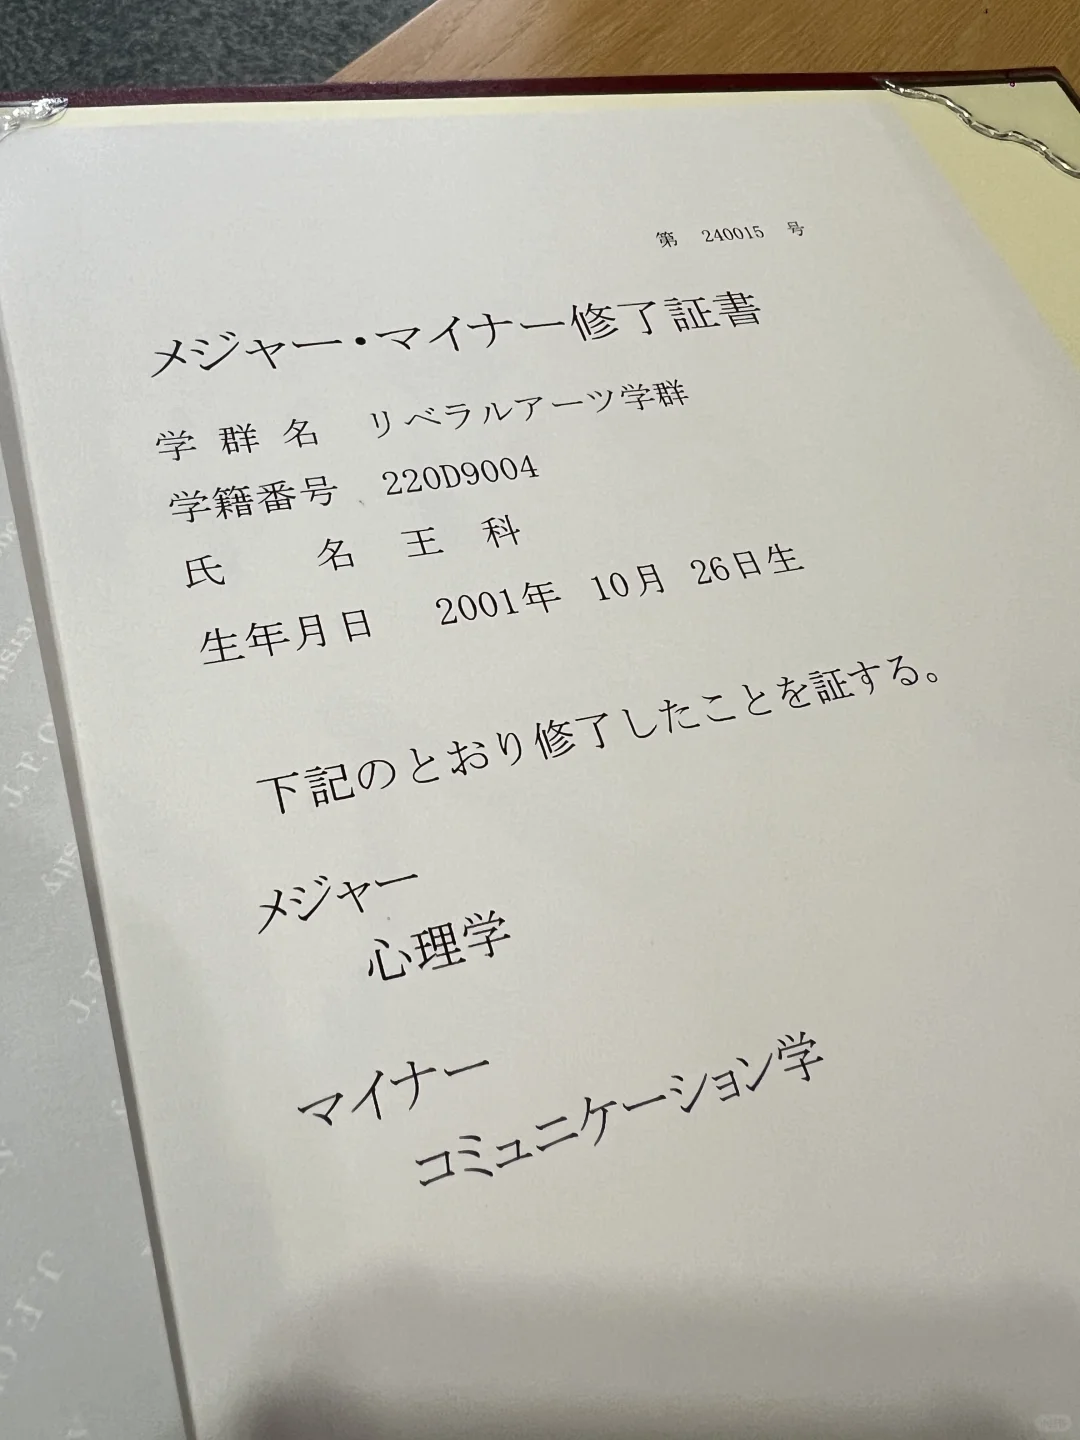 第 240015 号
メジャー・マイナー修了証書
学群名 リベラルアーツ学群
学籍番号 220D9004
氏名 王科
生年月日 2001年 10月 26日生
下記のとおり修了したことを証する。
メジャー
心理学
マイナー
コミュニケーション学